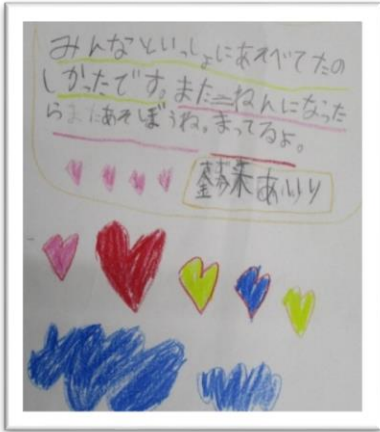 みんなといっしょにあそべてたの
しかったです。また二ねんになった
らまたあそぼうね。まってるよ。
あいり